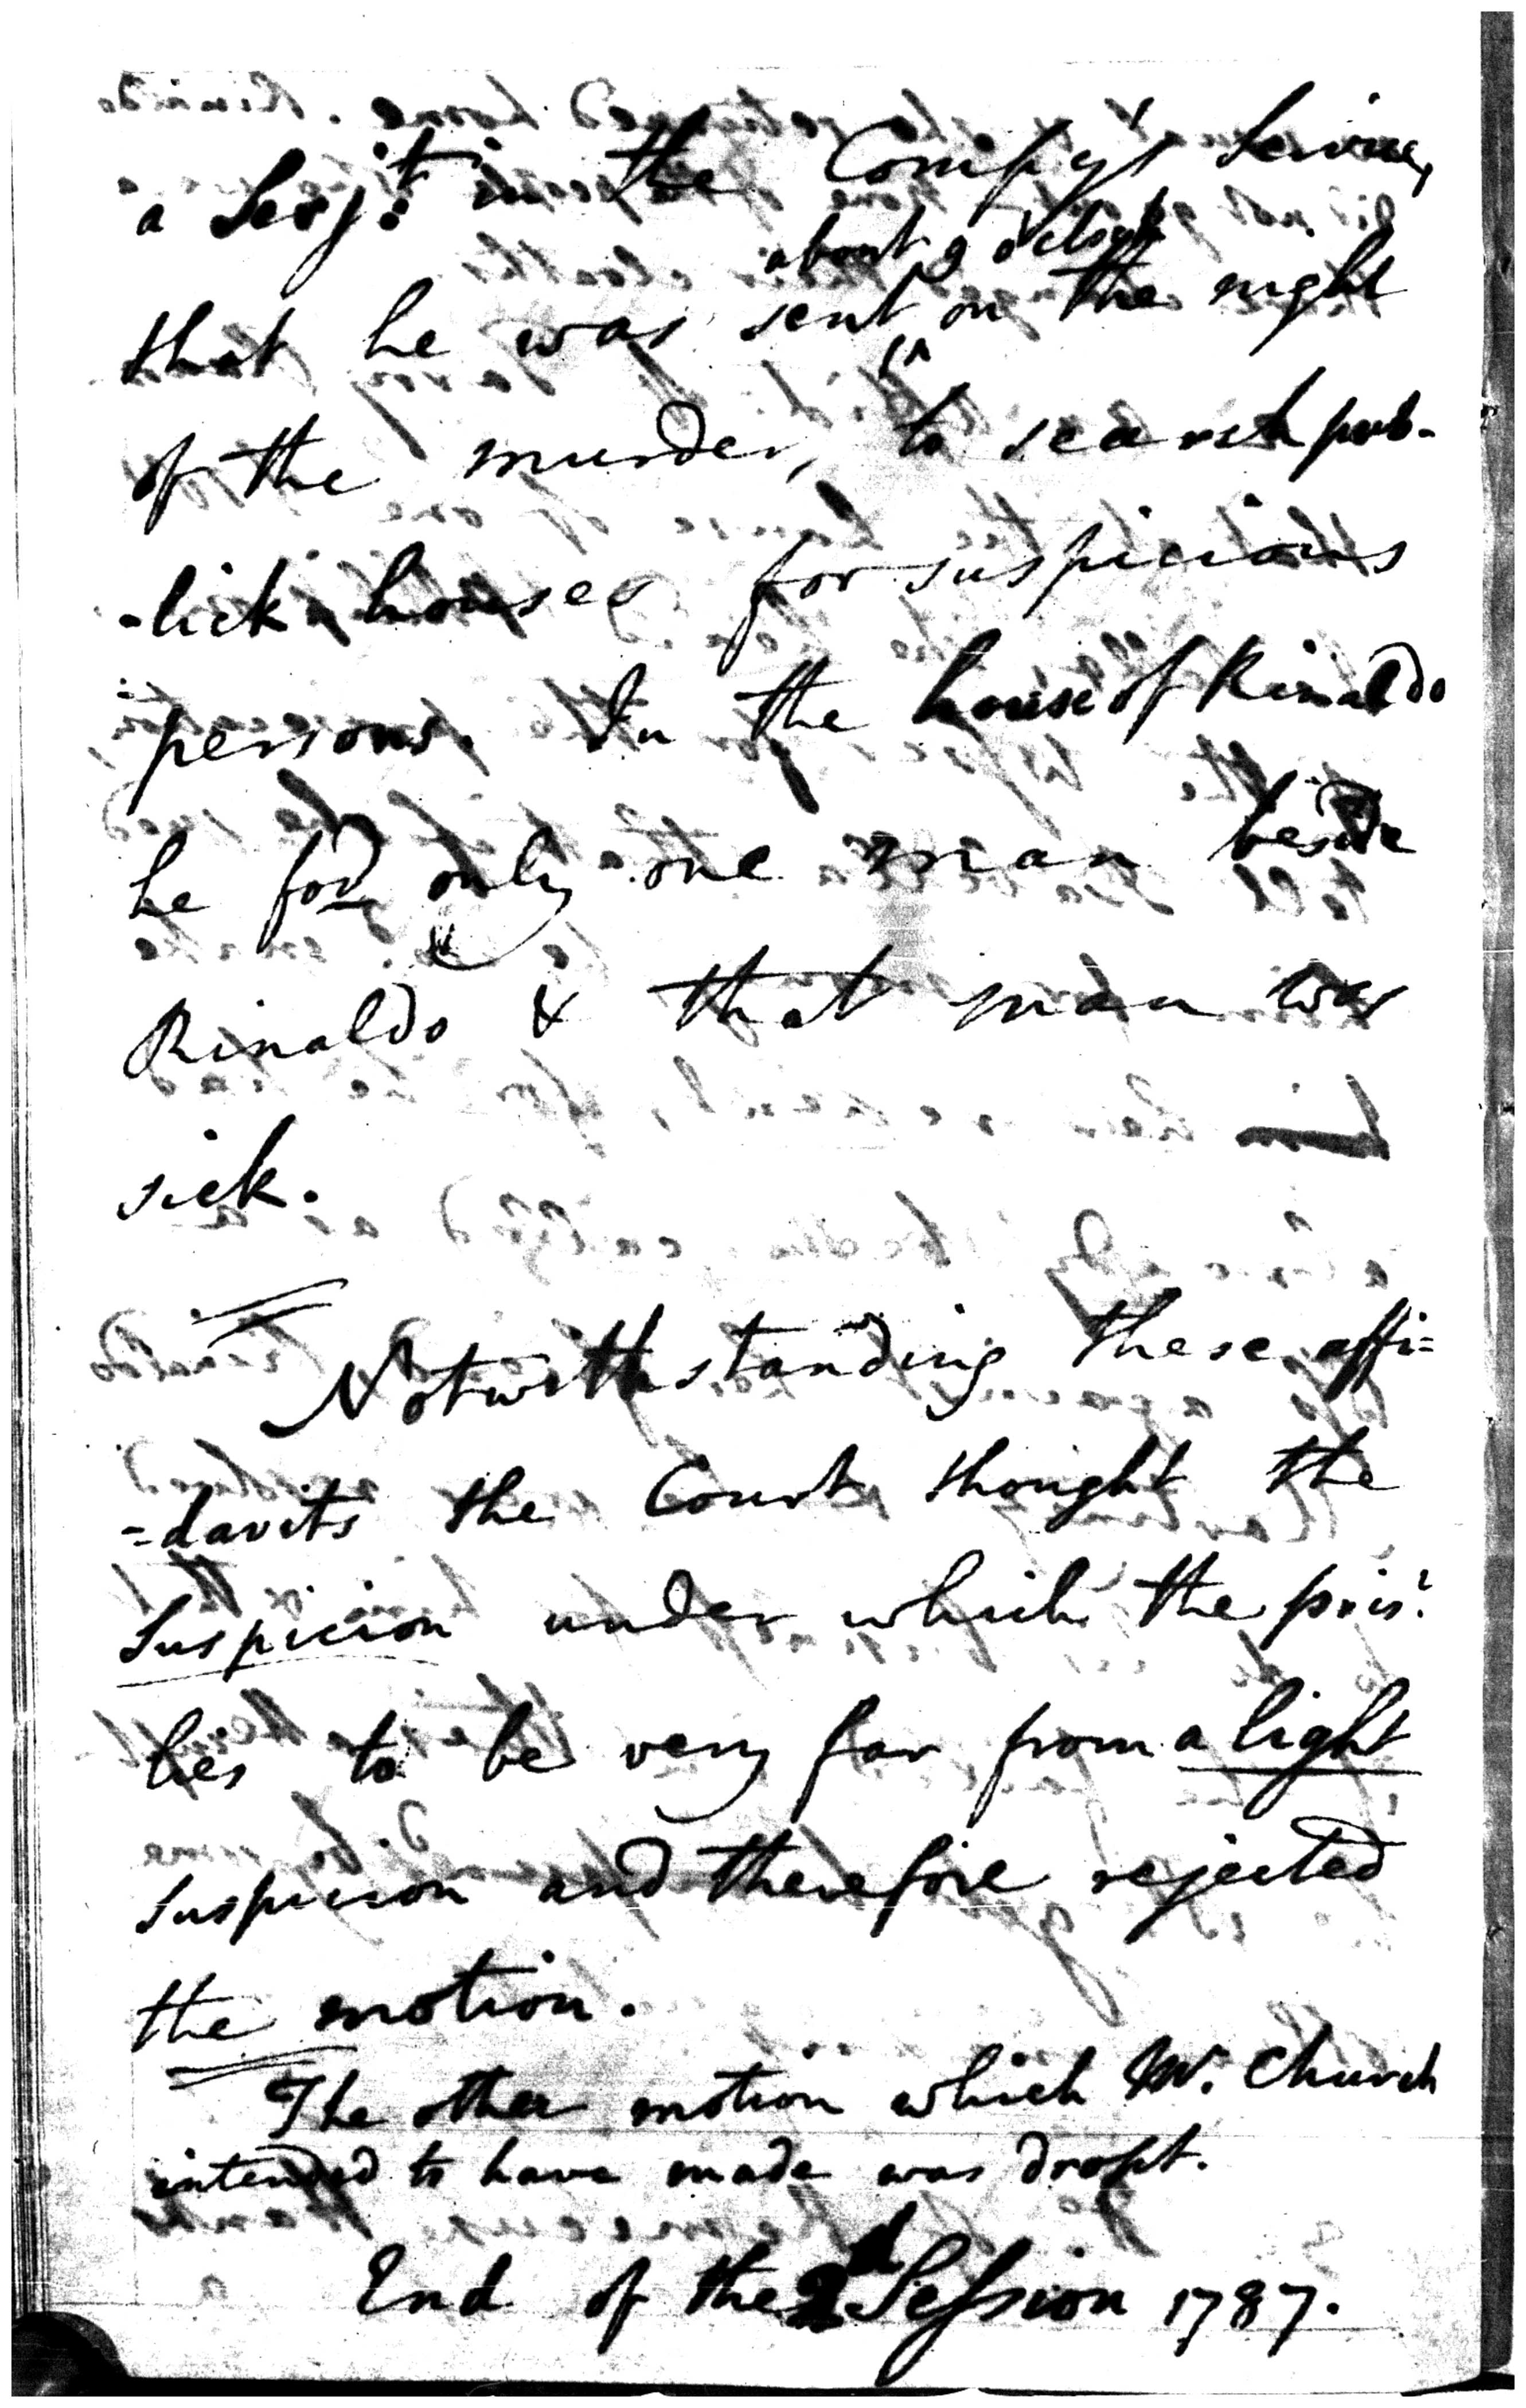 a Serjt. in the Compy's Service,
that he was sent about 9 o'clock on the night
of the murder, to search pub-
-lick houses for suspicious
persons. In the house of Rinaldo
he fod. only one man beside
Rinaldo & that man was
sick.
Notwithstanding these affi=
=davits the Court thought the
Suspicion under which the prisr.
lies to be very far from a light
suspicion and therefore rejected
the motion.
The other motion which Mr. Church
intended to have made was dropt.
End of the 2d Session 1787.